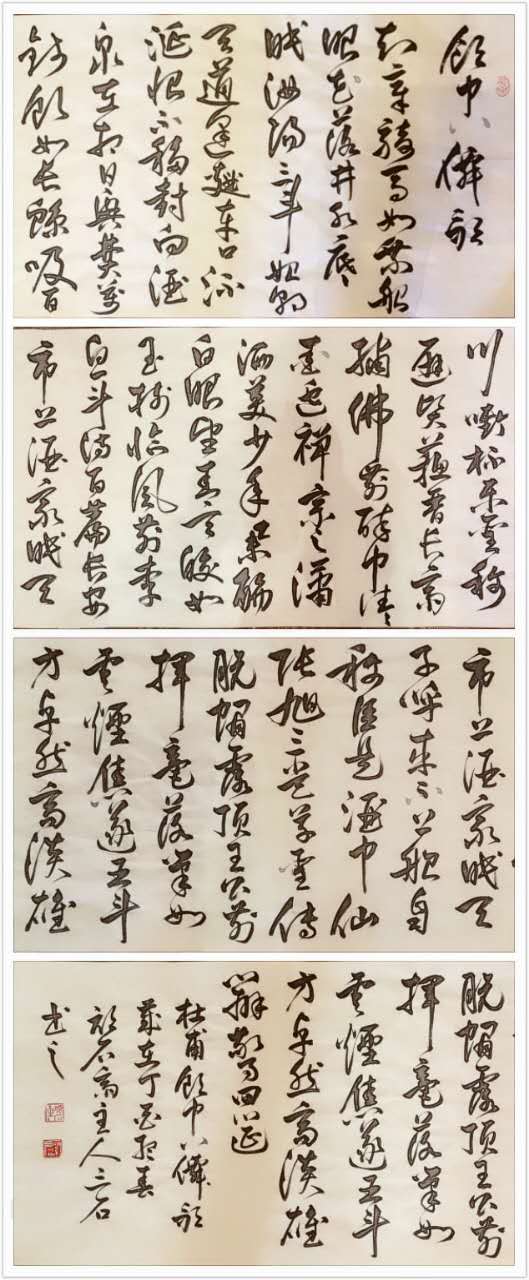 飲中八僊歌
知章騎馬如乘船
眼花落井水底
眠汝陽三斗始朝
天道逢麴車口流
涎恨不移封向酒
泉左相日興費萬
錢飲如長鯨吸百
川銜杯樂聖稱
避賢蘇晉長齋
繡佛前醉中往々
愛逃禪宗之瀟
灑美少年舉觴
白眼望青天皎如
玉樹臨風前李
白斗詩百篇長安
市上酒家眠天
市上酒家眠天
子呼來不上船自
稱臣是酒中仙
張旭三杯草聖傳
脫帽露頂王公前
揮毫落筆如
雲煙焦遂五斗
方卓然高談雄
脫帽露頂王公前
揮毫落筆如
雲煙焦遂五斗
方卓然高談雄
辯驚四筵
杜甫飲中八僊歌
歲在丁酉初春
齋主人三石
書之